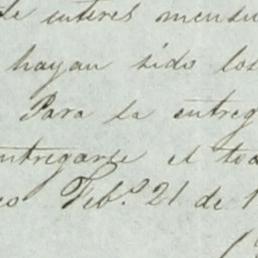 de interes mensu
hayan sido los
Para la entreg
ntregarse el to
co Feb.º 21 de 1